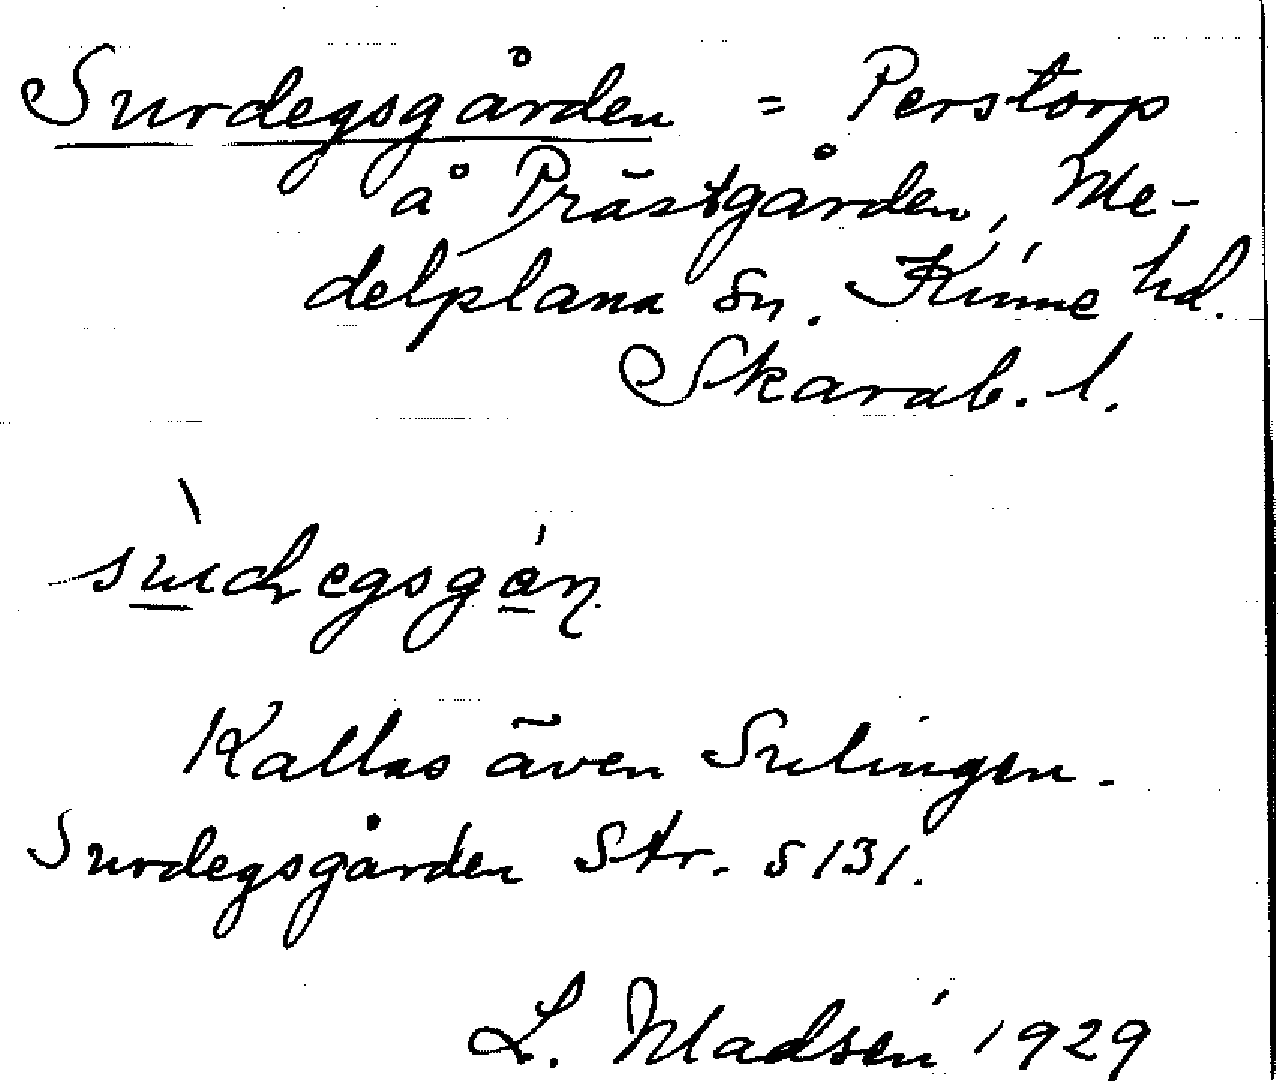 Surdegsgården = Perstorp
å Prästgården, Me-
delplana sn. Kinne hd.
Skarab. l.
Kallas även Sulingen.
Surdegsgården Str. s 131.
L. Madsén 1929